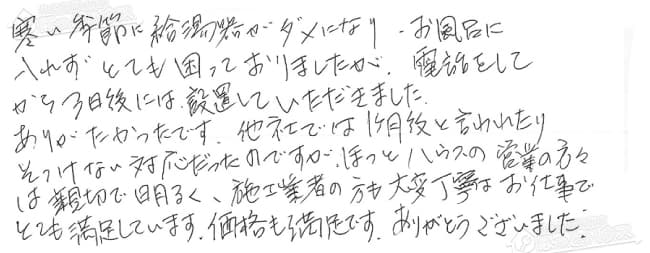 寒い季節に給湯器がダメになり、お風呂に
入れずとても困っておりましたが、電話をして
から3日後には、設置していただきました。
ありがたかったです。他社では1ヶ月後と言われたり
そっけない対応だったのですが、ほっとハウスの営業の方々
は親切で明るく、施工業者の方も大変丁寧なお仕事で
とても満足しています。価格も満足です。ありがとうございました。